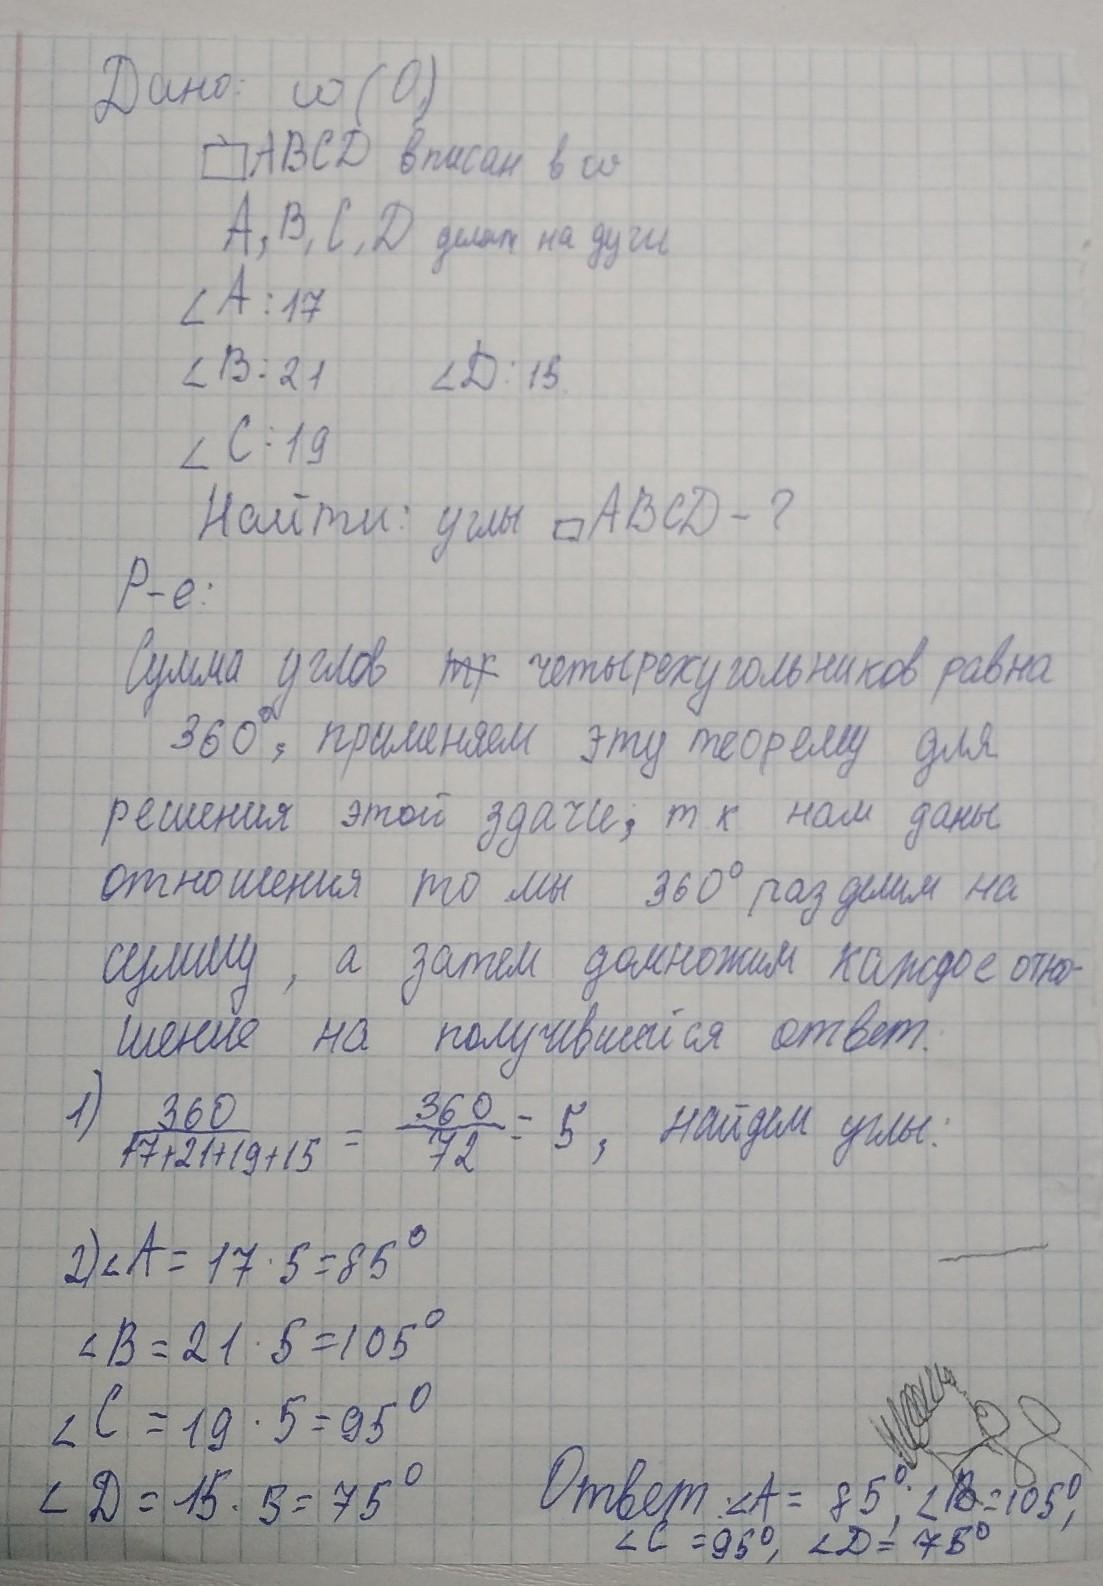 Дано: ω(O,)
ABCD вписан в ω
A, B, C, D делят на дуги
∠A:17
∠B:21 ∠D:15
∠C:19
Найти: углы ▱ABCD-?
Р-е:
Сумма углов четырехугольников равна
360°, применяем эту теорему для
решения этой здачи, т к нам даны
отношения то мы 360° разделим на
сумму, а затем домножим каждое отно-
шение на получившийся ответ.
1) 360/17+21+19+15 = 360/72 = 5, найдем углы:
2)∠A = 17·5=85°
∠B = 21·5=105°
∠C = 19·5=95°
∠D = 15·5=75°
Ответ: ∠A = 85°, ∠B=105°,
∠C =95°, ∠D= 75°